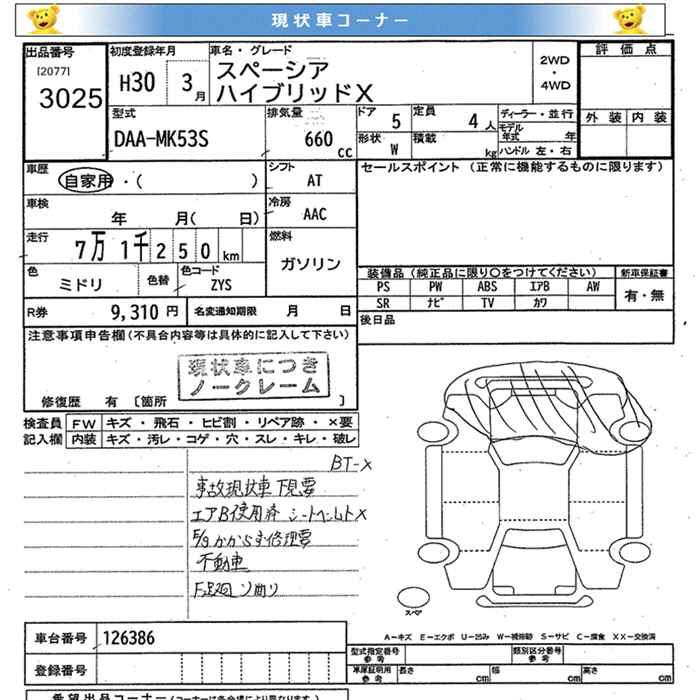 現状車コーナー
出品番号 初度登録年月 車名・グレード 2WD・4WD 評価点
[2077]
3025 H30 3月 スペーシア
ハイブリッドX
外装 内装
型式 排気量 ドア 5 定員 4人 ディーラー・並行
モデル年式 年
DAA-MK53S 660cc 形状 W 積載 kg ハンドル 左・右
車歴 自家用・( ) シフト AT セールスポイント (正常に機能するものに限ります)
車検 年 月( 日) 冷房 AAC
走行 7万1千250km 燃料 ガソリン
色 ミドリ 色替 色コード ZYS
装備品(純正品に限り○をつけてください) 新車保証書
PS PW ABS エアB AW 有・無
SR ナビ TV カワ
R券 9,310円 名変通知期限 月 日 後日品
注意事項申告欄(不具合内容等は具体的に記入して下さい)
現状車につき
ノークレーム
修復歴 有 〔箇所 〕
検査員記入欄 FW キズ・飛石・ヒビ割・リペア跡・×要
内装 キズ・汚レ・コゲ・穴・スレ・キレ・破レ
BT-X
事故現状車下見要
エアB使用済 シートベルトX
不動車
スペア
A-キズ E-エクボ U-凹み W-補修跡 S-サビ C-腐食 XX-交換済
車台番号 126386 型式指定番号 参考 類別区分番号 参考
登録番号 車庫証明用 参考 長さ cm 幅 cm 高さ cm
希望出品コーナー(コーナーは各会場により異なります)